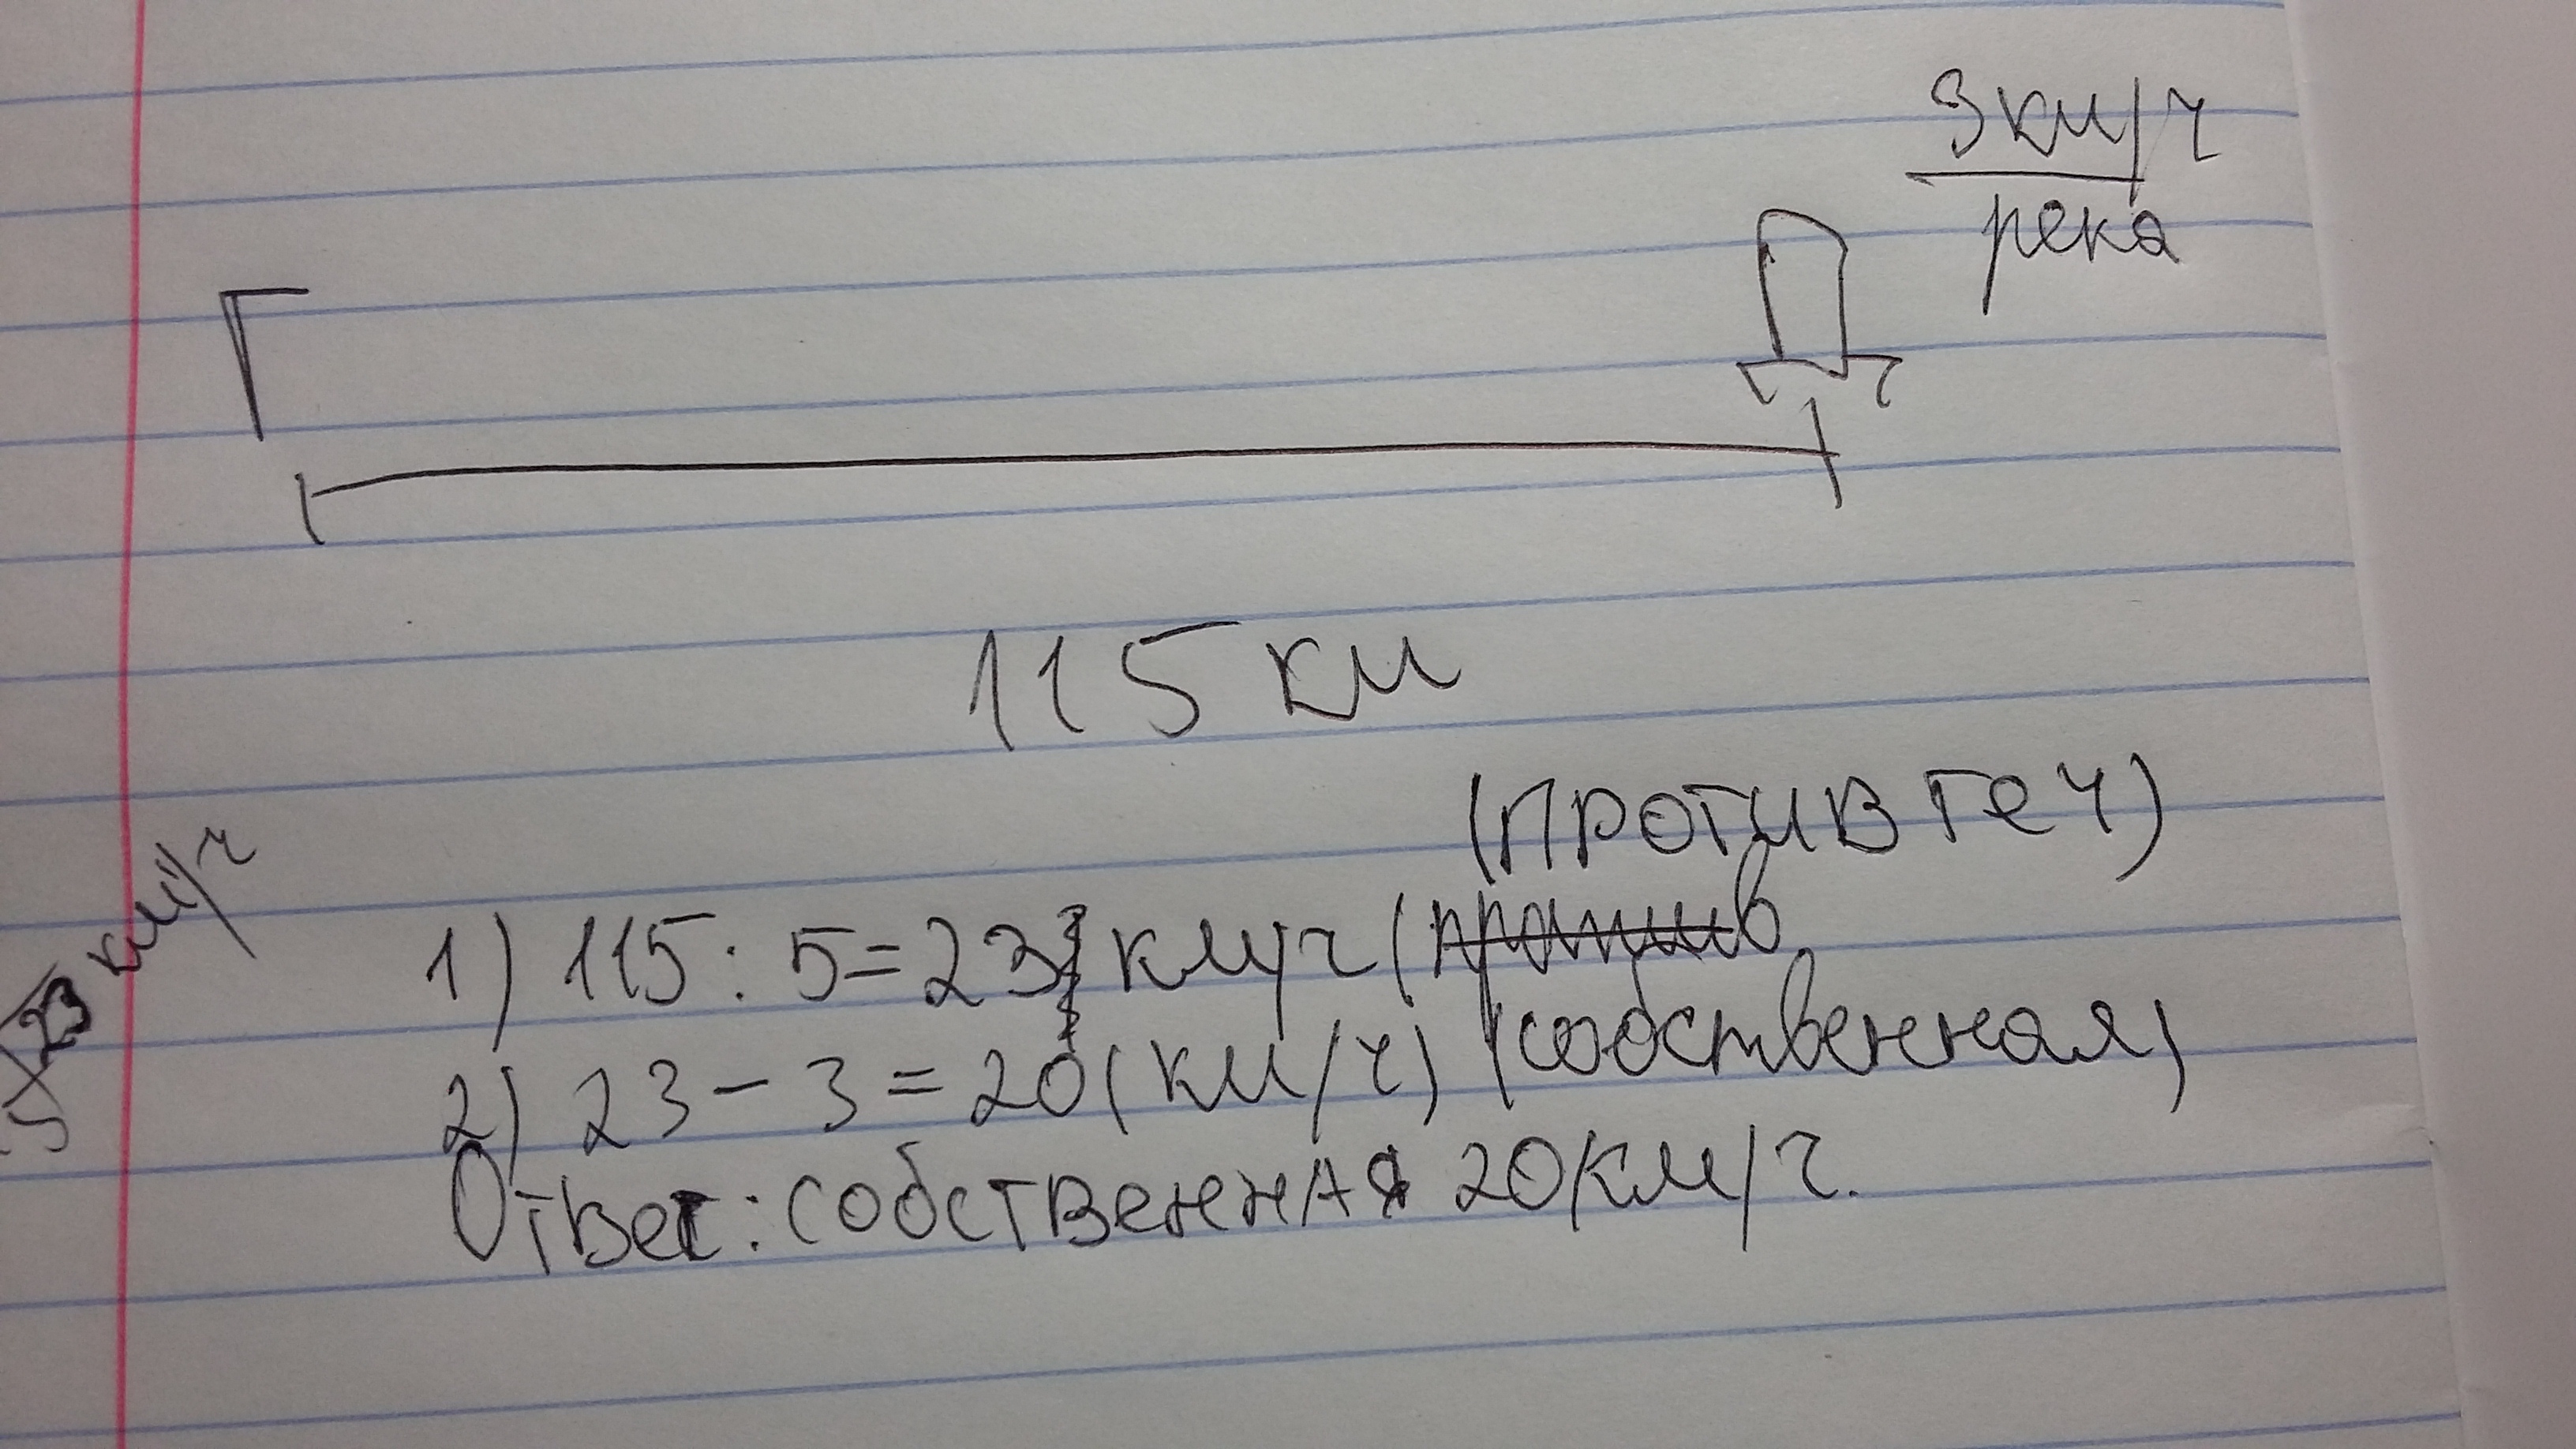 3 км/ч
река
115 км
(против теч)
23 км/ч
1) 115 : 5 = 23 км/ч (против
2) 23 - 3 = 20 (км/ч) (собственная)
Ответ: собственная 20 км/ч.